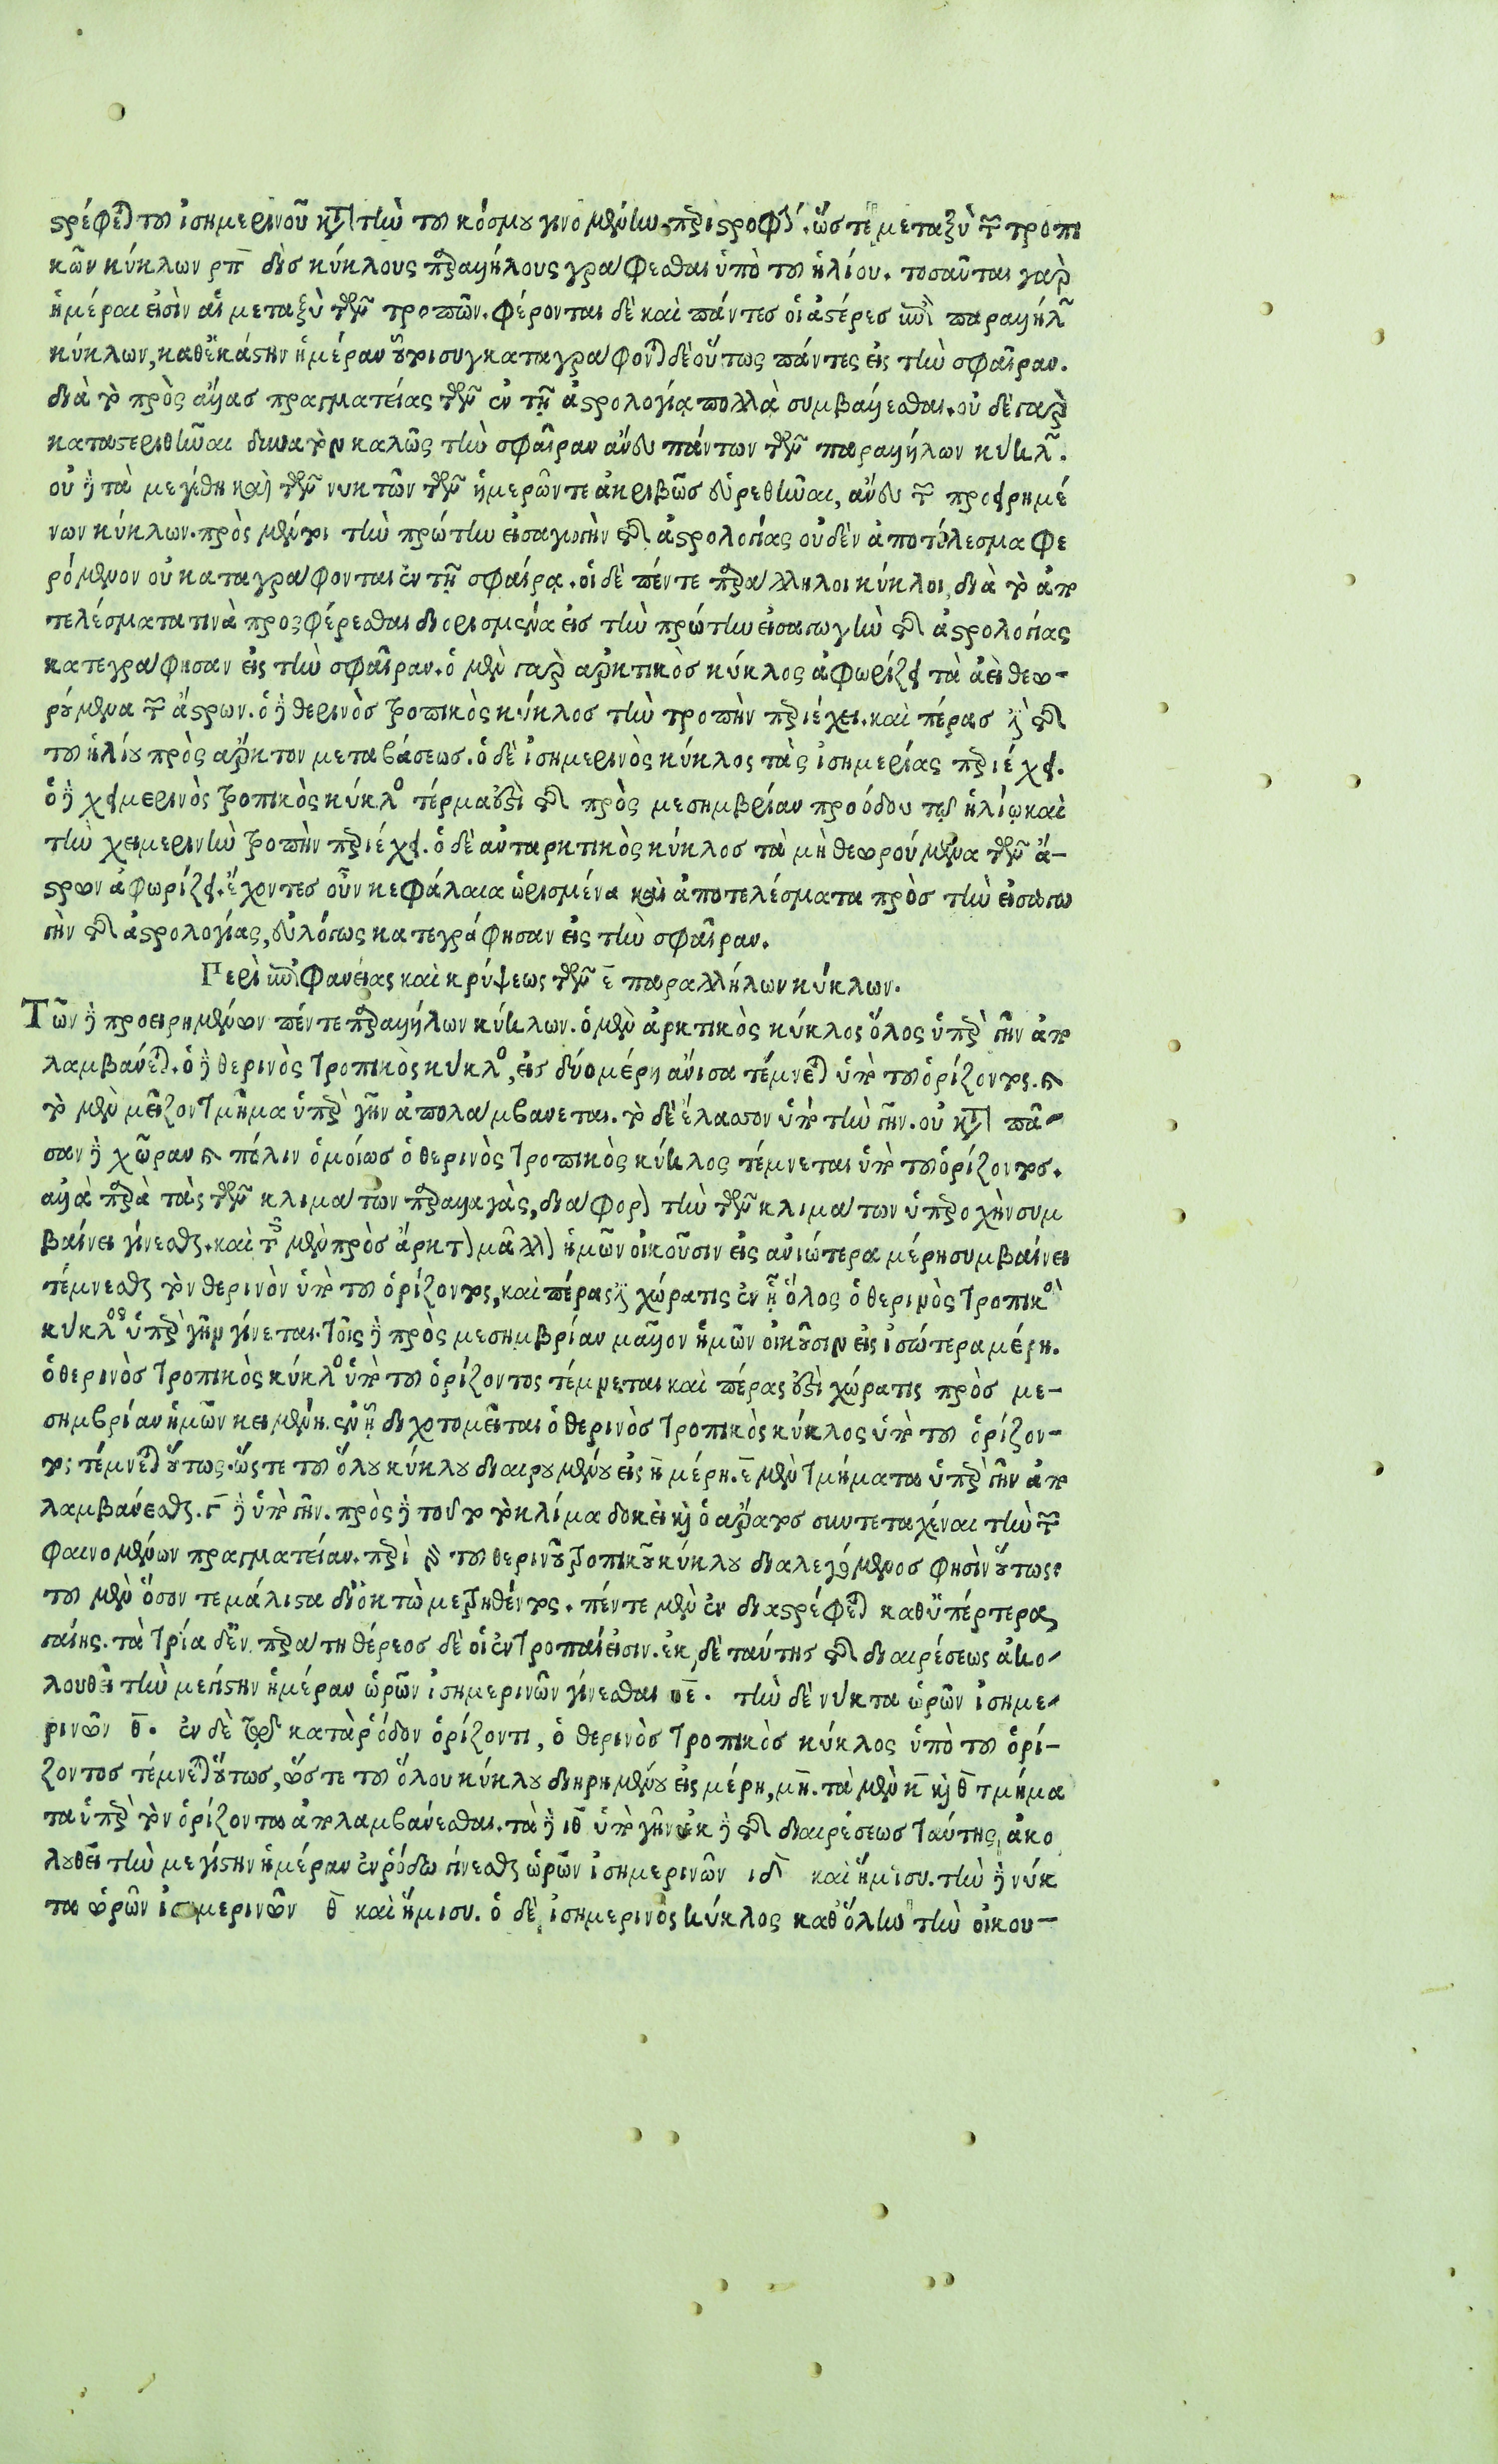 στρέφεται τοῦ ἰσημερινοῦ κατὰ τὴν τοῦ κόσμου γινομένην περιστροφήν. ὥστε μεταξὺ τῶν τροπι
κῶν κύκλων ρπ δὶς κύκλους παραλλήλους γράφεσθαι ὑπὸ τοῦ ἡλίου. τοσαῦται γὰρ
ἡμέραι εἰσὶν αἱ μεταξὺ τῶν τροπῶν. φέρονται δὲ καὶ πάντες οἱ ἀστέρες ἐπὶ παραλλήλων
κύκλων, καθ ἑκάστην ἡμέραν οὐχι συγκαταγράφονται δὲ οὕτως πάντες εἰς τὴν σφαῖραν.
διὰ τὸ πρὸς ἄλλας πραγματείας τῶν ἐν τῇ ἀστρολογίᾳ πολλὰ συμβάλλεσθαι. οὐ δὲ γὰρ
καταστερισθῆναι δυνατὸν καλῶς τὴν σφαῖραν ἄνευ πάντων τῶν παραλλήλων κύκλων.
οὐ δὲ τὰ μεγέθη καὶ τῶν νυκτῶν τῶν ἡμερῶν τε ἀκριβῶς εὑρεθῆναι, ἄνευ τῶν προειρημέ
νων κύκλων. πρὸς μέντοι τὴν πρώτην εἰσαγωγὴν τῆς ἀστρολογίας οὐδὲν ἀποτέλεσμα φε
ρόμενον οὐ καταγράφονται ἐν τῇ σφαίρᾳ. οἱ δὲ πέντε παράλληλοι κύκλοι, διὰ τὸ ἀπο
τελέσματα τινὰ προςφέρεσθαι διορισμένα εἰς τὴν πρώτην εἰσαγωγὴν τῆς ἀστρολογίας
κατεγράφησαν εἰς τὴν σφαῖραν. ὁ μὲν γὰρ ἀρκτικὸς κύκλος ἀφωρίζει τὰ ἀεὶ θεω-
ρούμενα τῶν ἄστρων. ὁ δὲ θερινὸς τροπικὸς κύκλος τὴν τροπὴν περιέχει. καὶ πέρας ἐστὶ τῆς
τοῦ ἡλίου πρὸς ἄρκτον μεταβάσεως. ὁ δὲ ἰσημερινὸς κύκλος τὰς ἰσημερίας περιέχει.
ὁ δὲ χειμερινὸς τροπικὸς κύκλος τέρμα ἐστὶ τῆς πρὸς μεσημβρίαν προόδου τῷ ἡλίῳ καὶ
τὴν χειμερινὴν τροπὴν περιέχει. ὁ δὲ ἀνταρκτικὸς κύκλος τὰ μὴ θεωρούμενα τῶν ἄ-
στρων ἀφωρίζει. ἔχοντες οὖν κεφάλαια ὡρισμένα καὶ ἀποτελέσματα πρὸς τὴν εἰσαγω
γὴν τῆς ἀστρολογίας, εὐλόγως κατεγράφησαν εἰς τὴν σφαῖραν.
Περὶ ἐπιφανείας καὶ κρύψεως τῶν ε παραλλήλων κύκλων.
Τῶν δὲ προειρημένων πέντε παραλλήλων κύκλων. ὁ μὲν ἀρκτικὸς κύκλος ὅλος ὑπὲρ γῆν ἀπο
λαμβάνεται. ὁ δὲ θερινὸς τροπικὸς κύκλος, εἰς δύο μέρη ἄνισα τέμνεται ὑπὸ τοῦ ὁρίζοντος. καὶ
τὸ μὲν μεῖζον τμῆμα ὑπὲρ γῆν ἀπολαμβάνεται. τὸ δὲ ἔλασσον ὑπὸ τὴν γῆν. οὐ κατὰ πᾶ-
σαν δὲ χῶραν καὶ πόλιν ὁμοίως ὁ θερινὸς τροπικὸς κύκλος τέμνεται ὑπὸ τοῦ ὁρίζοντος.
ἀλλὰ παρὰ τὰς τῶν κλιμάτων παραλλαγὰς, διάφορον τὴν τῶν κλιμάτων ὑπεροχὴν συμ
βαίνει γίνεσθαι. καὶ τοῖς μὲν πρὸς ἄρκτον μᾶλλον ἡμῶν οἰκοῦσιν εἰς ἀνιώτερα μέρη συμβαίνει
τέμνεσθαι τὸν θερινὸν ὑπὸ τοῦ ὁρίζοντος, καὶ πέρας ἐστὶ χώρα τις ἐν ᾗ ὅλος ὁ θερινὸς τροπικὸς
κύκλος ὑπὲρ γῆν γίνεται. τοῖς δὲ πρὸς μεσημβρίαν μᾶλλον ἡμῶν οἰκοῦσιν εἰς ἰσώτερα μέρη.
ὁ θερινὸς τροπικὸς κύκλος ὑπὸ τοῦ ὁρίζοντος τέμνεται καὶ πέρας ἐστὶ χώρα τις πρὸς με-
σημβρίαν ἡμῶν κειμένη. ἐν ᾗ διχοτομεῖται ὁ θερινὸς τροπικὸς κύκλος ὑπὸ τοῦ ὁρίζον-
τος τέμνεται οὕτως. ὥς τε τοῦ ὅλου κύκλου διαιρουμένου εἰς η μέρη. ε μὲν τμήματα ὑπὲρ γῆν ἀπο
λαμβάνεσθαι. γ δὲ ὑπὸ γῆν. πρὸς δὲ τοῦτο τὸ κλίμα δοκεῖ καὶ ὁ ἄρατος συντεταχέναι τὴν τῶν
φαινομένων πραγματείαν. περὶ γὰρ τοῦ θερινοῦ τροπικοῦ κύκλου διαλεγόμενος φησὶν οὕτως
τοῦ μὲν ὅσον τε μάλιστα δι ὀκτὼ μετρηθέντος. πέντε μὲν ἐν διαστρέφεται καθ ὑπέρτερα
γαίης. τὰ τρία δ ἐν περάτῃ θέρεος δὲ οἱ ἐν τροπαί εἰσιν. ἐκ δὲ ταύτης τῆς διαιρέσεως ἀκο-
λουθεῖ τὴν μεγίστην ἡμέραν ὡρῶν ἰσημερινῶν γίνεσθαι ιε. τὴν δὲ νύκτα ὡρῶν ἰσημε-
ρινῶν θ. ἐν δὲ τῷ κατὰ ῥόδον ὁρίζοντι, ὁ θερινὸς τροπικὸς κύκλος ὑπὸ τοῦ ὁρί-
ζοντος τέμνεται οὕτως, ὥστε τοῦ ὅλου κύκλου διηρημένου εἰς μέρη, μη. τὰ μὲν κ καὶ θ τμήμα
τα ὑπὲρ τὸν ὁρίζοντα ἀπολαμβάνεσθαι. τὰ δὲ ιθ ὑπὸ γῆν ἐκ δὲ τῆς διαιρέσεως ταύτης, ἀκο
λουθεῖ τὴν μεγίστην ἡμέραν ἐν ῥόδῳ γίνεσθαι ὡρῶν ἰσημερινῶν ιδ καὶ ἥμισυ. τὴν δὲ νύκ
τα ὡρῶν ἰσημερινῶν θ καὶ ἥμισυ. ὁ δὲ ἰσημερινὸς κύκλος καθ ὅλην τὴν οἰκου-